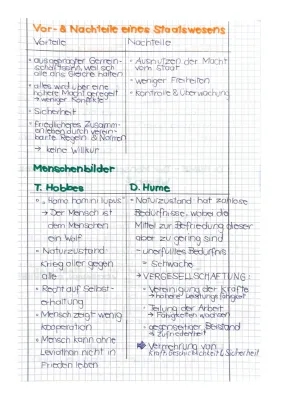 Vor- & Nachteile eines Staatswesens
Vorteile
• ausgeprägter Gemein-
schaftssinn, weil sich
alle ans Gleiche halten
• alles wird über eine
höhere Macht geregelt
→ weniger Konflikte
• Sicherheit
• friedlicheres Zusamm-
enleben durch verein-
barte Regeln & Normen
→ keine Willkür
Nachteile
• Ausnutzen der Macht
vom Staat
• weniger Freiheiten
• Kontrolle & Überwachung
Menschenbilder
T. Hobbes
• „Homo homini lupus"
→ Der Mensch ist
dem Menschen
ein Wolf
• Naturzustand:
Krieg aller gegen
alle
• Recht auf Selbst-
erhaltung
• Mensch zeigt wenig
Kooperation
• Mensch kann ohne
Leviathan nicht in
Frieden leben
D. Hume
• Naturzustand hat zahllose
Bedürfnisse, wobei die
Mittel zur Befriedigung dieser
aber zu gering sind
- unerfülltes Bedürfnis
= Schwäche
→ VERGESELLSCHAFTUNG:
• Vereinigung der Kräfte
→ höhere Leistungsfähigkeit
• Teilung der Arbeit
→ Fähigkeiten wachsen
• gegenseitiger Beistand
→ Zufriedenheit
→ Vermehrung von
Kraft, Geschicklichkeit & Sicherheit